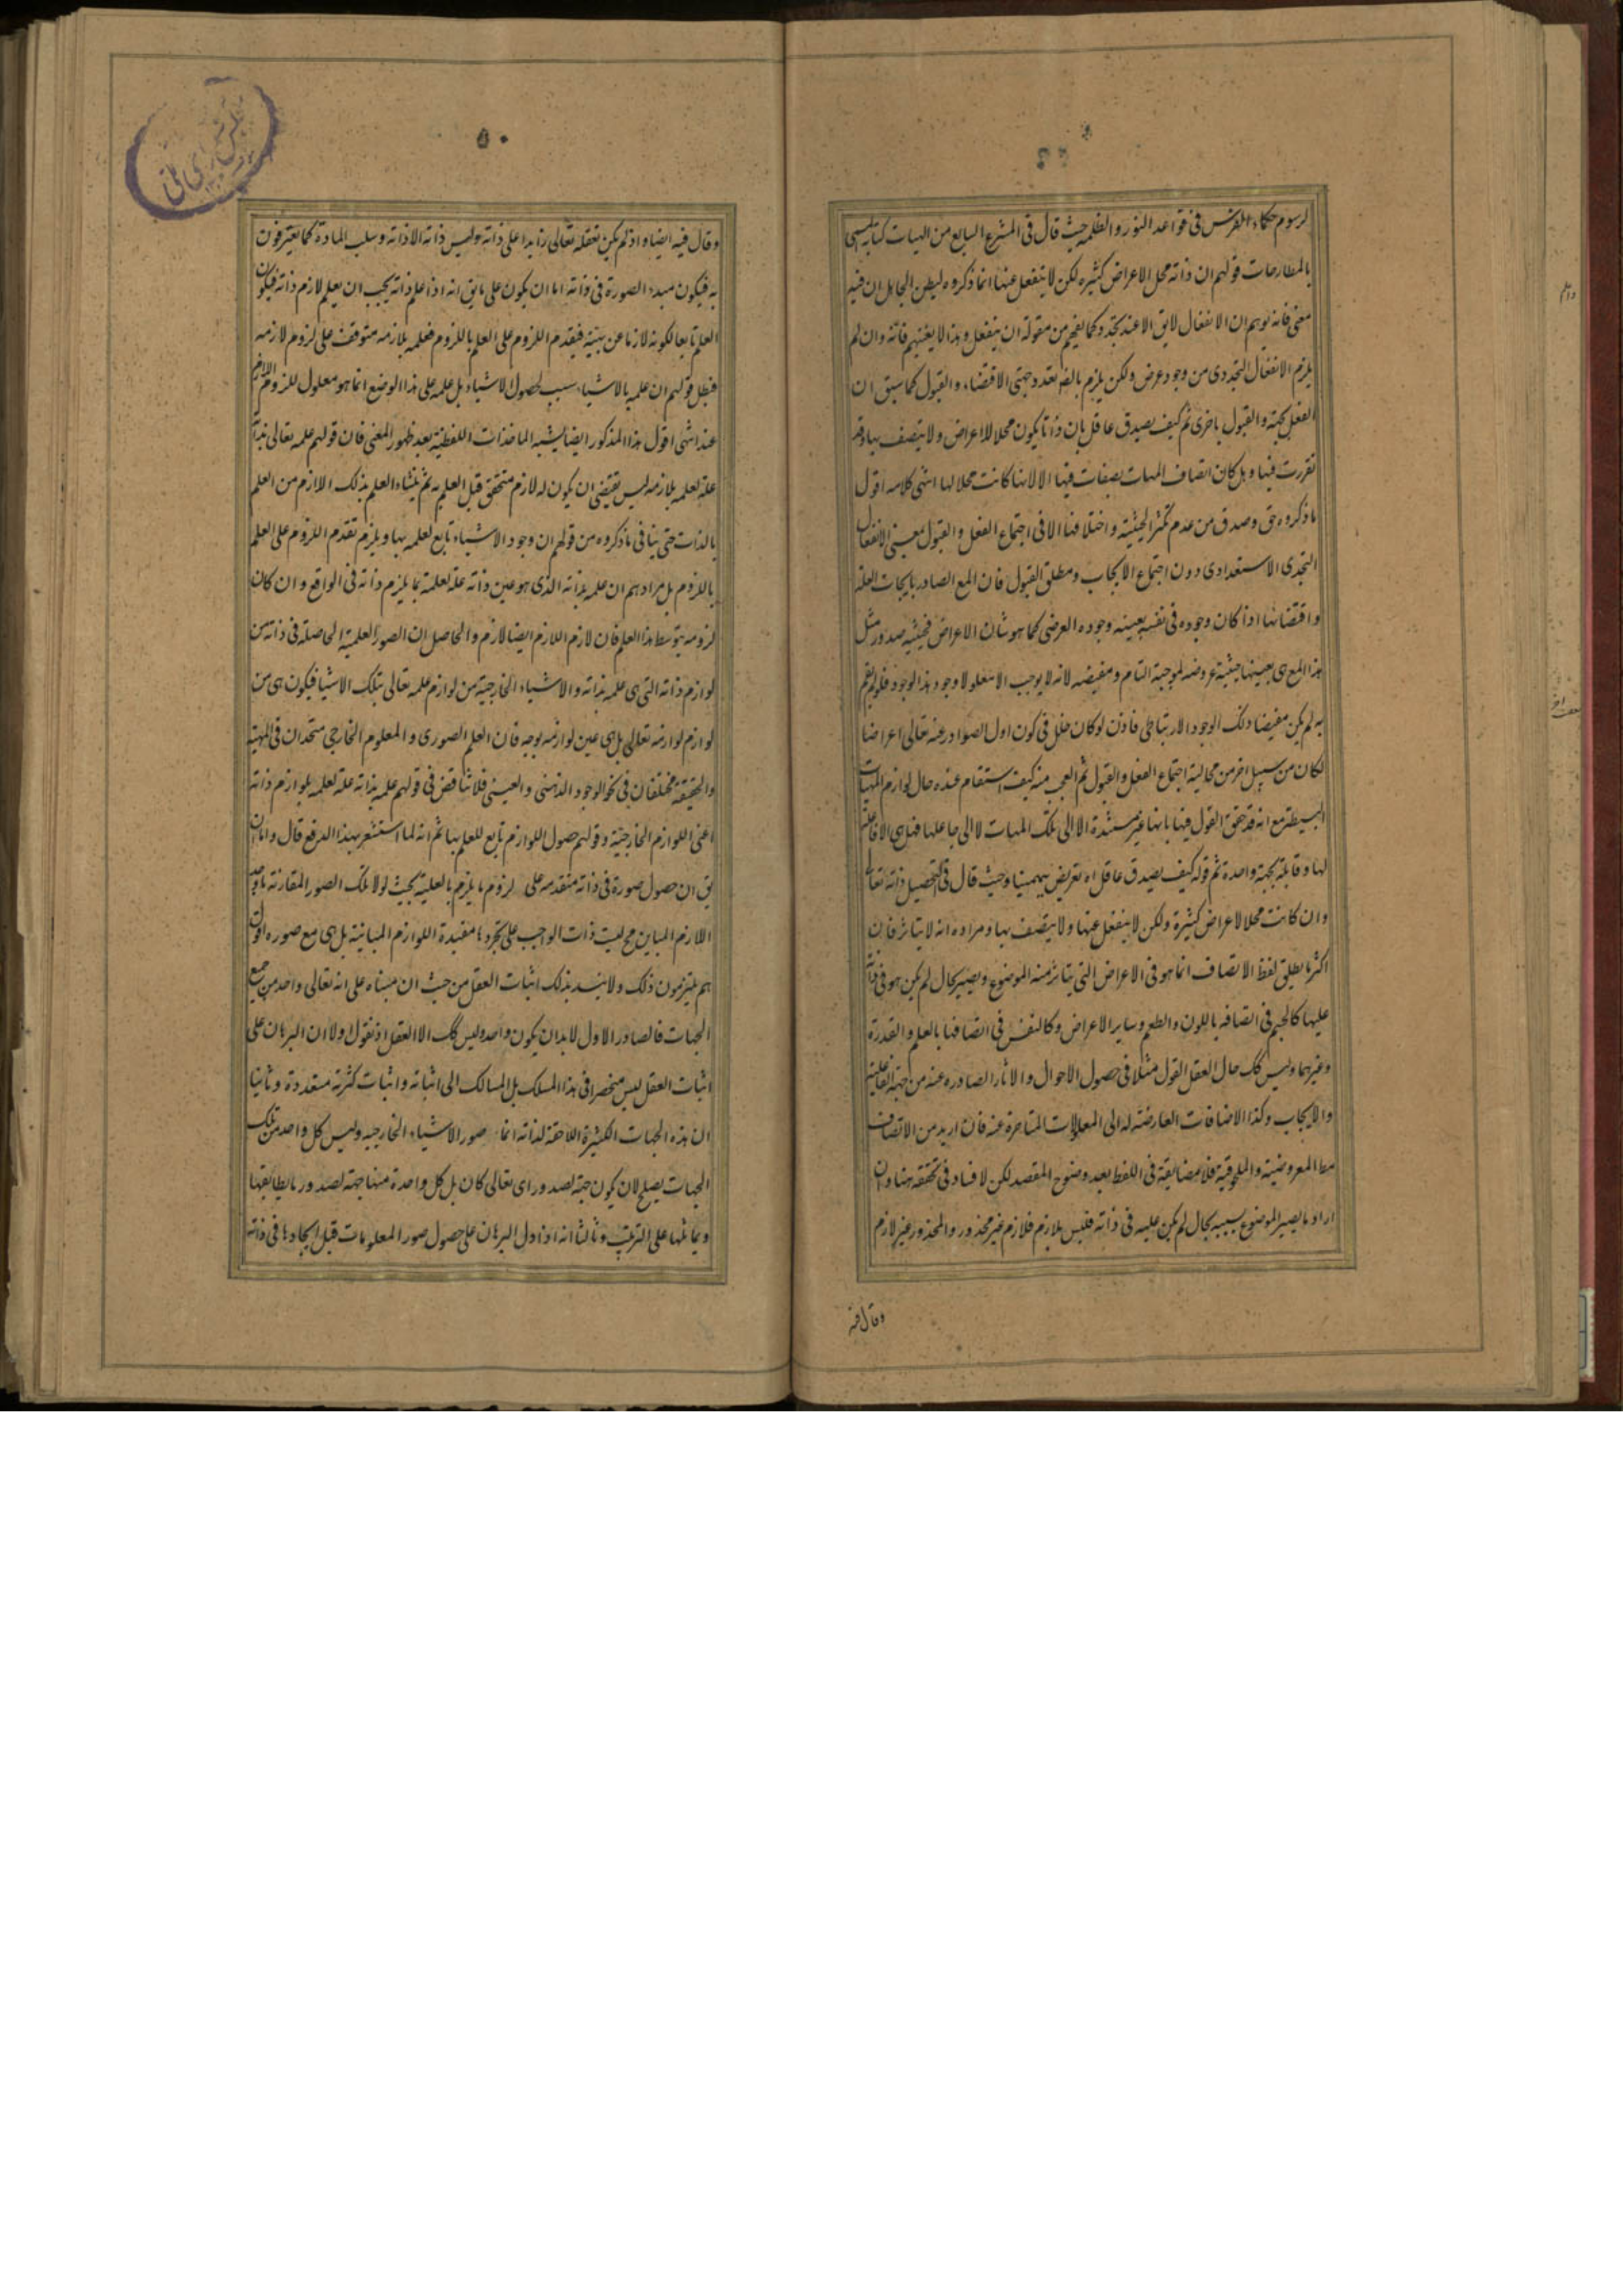 لرسوم حكماء الفرس فى قواعد النور و الظلمه حيث قال فى المشرع السابع من الهيات كتابه المسمى
بالمطارحات قولهم ان ذاته محل الاعراض كثيره لكن لا ينفعل عنها انما ذكروه ليظن الجاهل ان فيه
معنى فانه يوهم ان الانفعال لايق الا عند تجدد كما يفهم من مقولة ان ينفعل و هذا لا يغنيهم فانه و ان لم
يلزم الانفعال التجددى من وجود عرض و لكن يلزم بالضر تعدد جهتى الاقتضاء و القبول كما سبق ان
الفعل بجهة و القبول باخرى ثم كيف يصدق عاقل بان ذاتا يكون محلا للاعراض و لا يتصف بها و قد
تقررت فيها و هل كان اتصاف المهيات بصفات فيها الا لانها كانت محلا لها انتهى كلامه اقول
ما ذكروه حق و صدق من عدم تكثر الحيثية و اختلافها الا فى اجتماع الفعل و القبول بمعنى الانفعال
التجددى الاستعدادى دون اجتماع الايجاب و مطلق القبول فان المع الصادر بايجاب العلة
و اقتضائها اذا كان وجوده فى نفسه بعينه وجوده العرضى كما هو شان الاعراض فحيثيه صدور مثل
هذا المع هى بعينها حيثية عروضه لموجبة التام و مفيضه لانه لا يوجب الا معلولا وجود هذا الوجود فلو لم يقم
به لم يكن مفيضا ذلك الوجود الارتباطى فاذن لو كان خلل فى كون اول الصوادر عنه تعالى اعراضا
لكان من سبيل اخر من محالية اجتماع الفعل و القبول ثم العجب منه كيف استقام عنده حال لوازم المهيات
البسيطة مع انه قد حقق القول فيها بانها غير مستندة الا الى تلك المهيات لا الى جاعلها فهل هى الا فاعلة
لها و قابلة بجهة واحدة ثم قوله كيف يصدق عاقل اه تعريض ببهمنيار حيث قال فى التحصيل ذاته تعالى
و ان كانت محلا لاعراض كثيرة و لكن لا ينفعل عنها و لا يتصف بها و مراده انه لا يتاثر فان
اكثر ما يطلق لفظ الاتصاف انما هو فى الاعراض التى يتاثر منه الموضوع و يصير بحال لم يكن هو فى ذاته
عليها كالجسم فى اتصافه باللون و الطعم و ساير الاعراض و كالنفس فى اتصافها بالعلم و القدرة
و غيرهما و ليس كك حال العقل الفعال مثلا فى حصول الاحوال و الاثار الصادره عنه من جهة الفاعلية
و الايجاب و كذا الاضافات العارضة له الى المعلولات المتاخرة عنه فان اريد من الاتصاف
مط المعروضية و الملحوقية فلا مضايقة فى اللفظ بعد وضوح المقصد لكن لا فساد فى تحققه هنا و ان
اراد ما يصير الموضوع بسببه بحال لم يكن عليه فى ذاته فليس بلازم فلازم غير محذور و المحذور غير لازم
و قال فيه
٥٠
و قال فيه ايضا و اذ لم يكن تعقله تعالى زايدا على ذاته و ليس ذاته الا ذاته و سلب المادة كما يعترفون
به فيكون مبدء الصورة فى ذاته اما ان يكون على ما يق انه اذا علم ذاته يجب ان يعلم لازم ذاته فيكون
العلم تابعا لكونه لازما عن بنيته فيقدم اللزوم على العلم باللزوم فعلمه بلازمه متوقف على لزوم لازمه
فبطل قولهم ان علمه بالاشياء سبب لحصول الاشياء بل علمه على هذا الوضع انما هو معلول للزوم اللازم
عنه انتهى اقول هذا المذكور ايضا يشبه الماخذات اللفظية بعد ظهور المعنى فان قولهم علمه تعالى بذاته
علة لعلمه بلازمه ليس يقتضى ان يكون له لازم متحقق قبل العلم به ثم ينشاء العلم بذلك اللازم من العلم
بالذات حتى ينافى ما ذكروه من قولهم ان وجود الاشياء تابع لعلمه بها و يلزم تقدم اللزوم على العلم
باللزوم بل مرادهم ان علمه بذاته الذى هو عين ذاته علة لعلمه بما يلزم ذاته فى الواقع و ان كان
لزومه بتوسط هذا العلم فان لازم اللازم ايضا لازم و الحاصل ان الصور العلمية الحاصلة فى ذاته من
لوازم ذاته التى هى علمه بذاته و الاشياء الخارجية من لوازم علمه تعالى بتلك الاشيا فيكون هى من
لوازم لوازمه تعالى بل هى عين لوازمه بوجه فان العلم الصورى و المعلوم الخارجى متحدان فى المهية
و الحقيقة مختلفان فى نحو الوجود الذهنى و العينى فلا تناقض فى قولهم علمه بذاته علة لعلمه بلوازم ذاته
اعنى اللوازم الخارجية و قولهم حصول اللوازم تابع للعلم بها ثم انه لما استشعر بهذا الدفع قال و اما ان
يق ان حصول صورة فى ذاته متقدمه على لزوم ما يلزم بالعلية بحيث لولا تلك الصور المقارنة ما وجد
اللازم المباين محليت ذات الواجب على تجردها مفيدة اللوازم المباينة بل هى مع صوره اقول
هم يلتزمون ذلك و لا ينسد بذلك اثبات العقل من حيث ان مبناه على انه تعالى واحد من جميع
الجهات فالصادر الاول لا بد ان يكون واحدا و ليس كك الا العقل اذ نقول اولا ان البرهان على
اثبات العقل ليس منحصرا فى هذا المسلك بل المسالك الى اثباته و اثبات كثرته متعددة و ثانيا
ان هذه الجهات الكثيرة اللاحقة لذاته انما صور الاشياء الخارجيه و ليس كل واحد من تلك
الجهات يصلح لان يكون جهة لصدور اى تعالى كان بل كل واحدة منها جهة لصدور ما يطابقها
و يماثلها على الترتيب و ثالثا انه اذا دل البرهان على حصول صور المعلومات قبل ايجادها فى ذاته